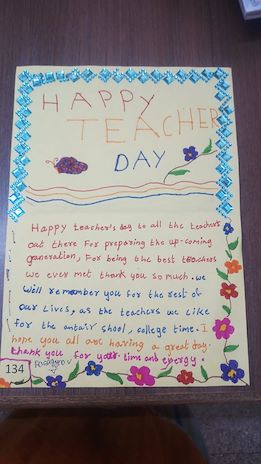 HAPPY
TEACHER
DAY
Happy teacher's day to all the teachers
out there For preparing the up-coming
generation, For being the best teachers
we ever met thank you so much. we
will remember you for the rest of
our lives, as the teachers we like
for the antair shool, college time. I
hope you all are having a great day.
thank you for your time and energy.
134